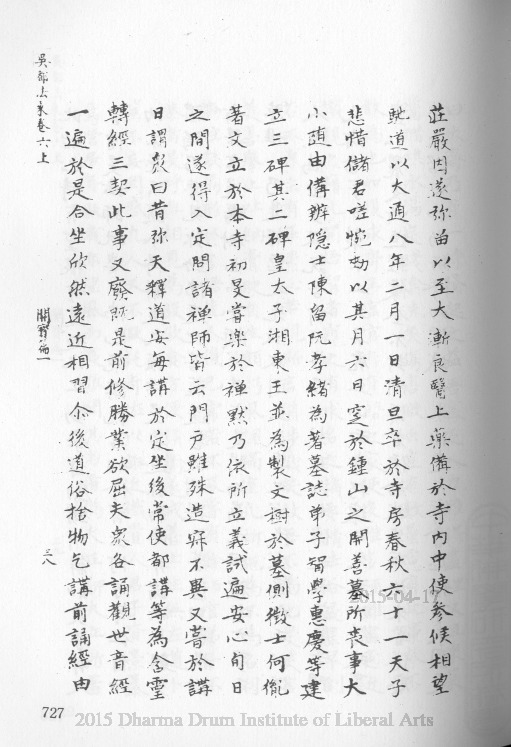 莊嚴因遂弥留以至大漸良醫上藥備於寺內中使參候相望
馳道以大通八年二月一日清旦卒於寺房春秋六十一天子
悲惜儲君嗟惋勅以其月六日窆於鍾山之開善墓所喪事大
小隨由備辦隐士陳留阮孝緒為著墓誌弟子智學惠慶等建
立三碑其二碑皇太子湘東王並為製文樹於墓側徵士何胤
著文立於本寺初旻嘗樂於禅默乃依所立義試遍安心旬日
之間遂得入定問諸禅師皆云門户雖殊造寂不異又嘗於講
日謂衆曰昔弥天釋道安每講於定坐後常使都講等為含靈
轉經三契此事乂廢既是前修勝業欲屈夫衆各誦觀世音經
一遍於是合坐欣然遠近相習尒後道俗捨物乞講前誦經由
吳都法乘卷六上
開寳篇一
三八
727
2015-04-17
2015 Dharma Drum Institute of Liberal Arts